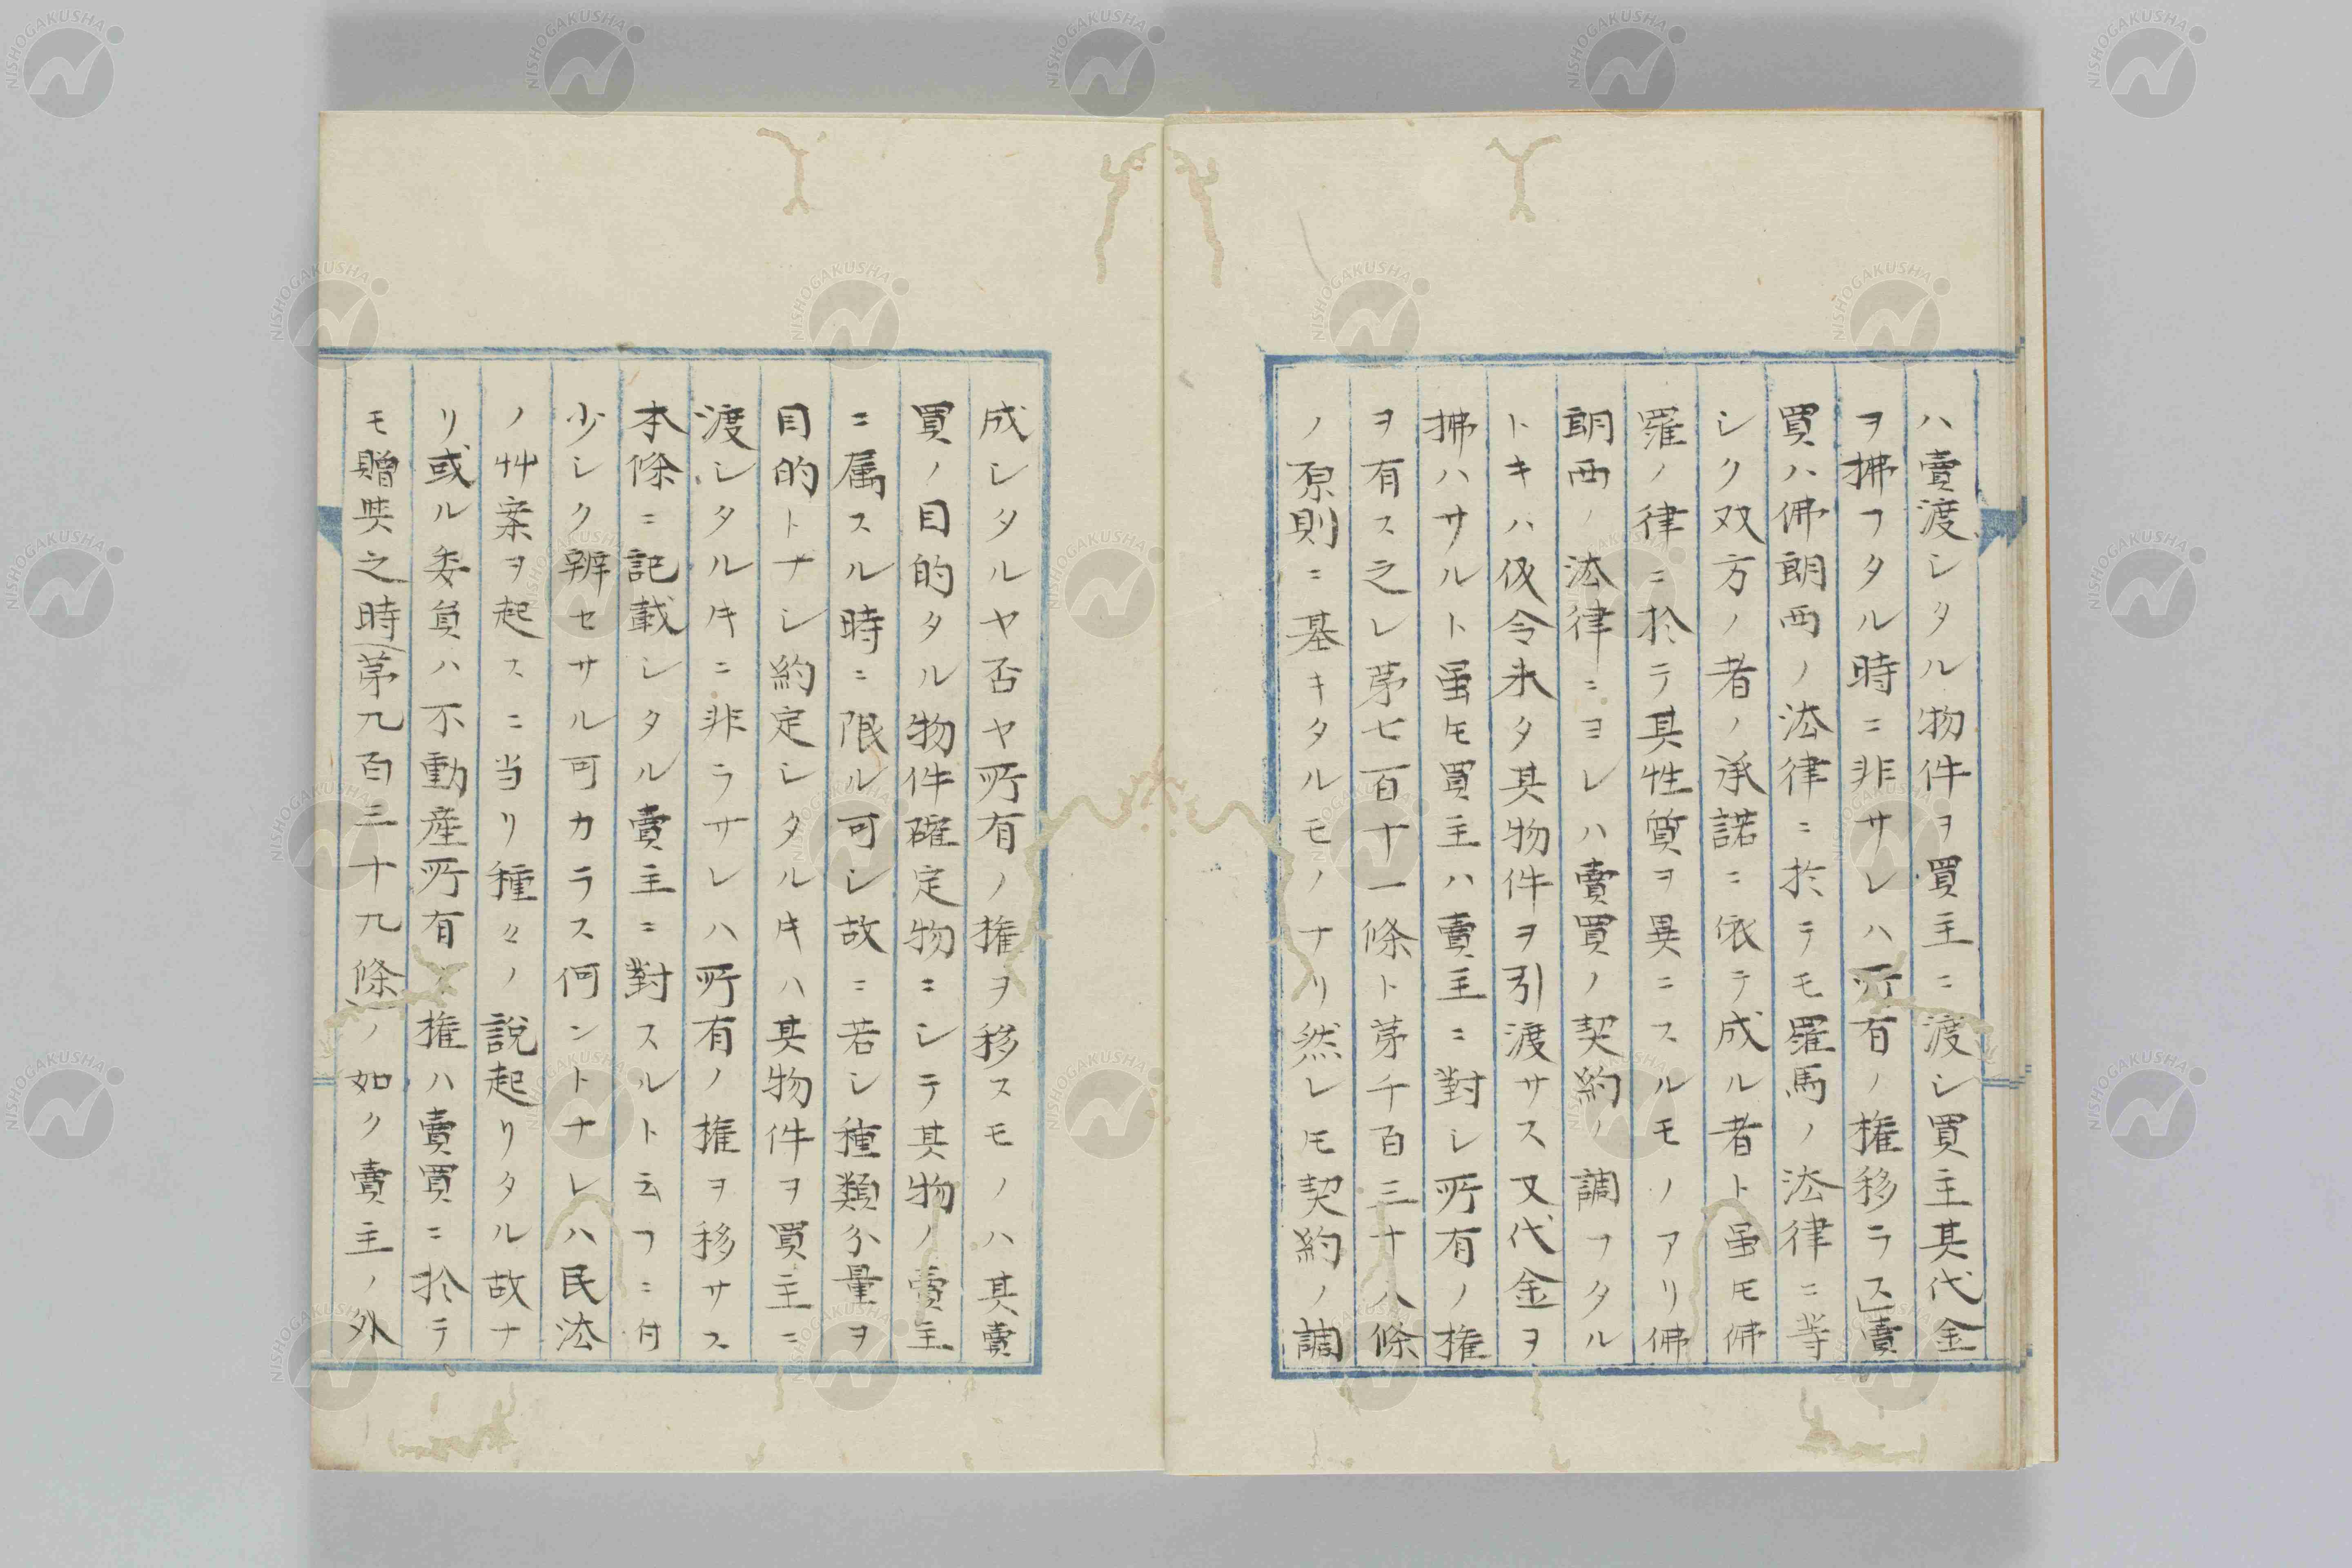 ハ賣渡シタル物件ヲ買主ニ渡シ買主其代金
ヲ拂フタル時ニ非サレハ所有ノ権移ラス」賣
買ハ佛朗西ノ法律ニ於テモ羅馬ノ法律ニ等
シク双方ノ者ノ承諾ニ依テ成ル者ト虽𪜈佛
羅ノ律ニ於テ其性質ヲ異ニスルモノアリ佛
朗西ノ法律ニヨレハ賣買ノ契約ノ調フタル
トキハ仮令未タ其物件ヲ引渡サス又代金ヲ
拂ハサルト虽𪜈買主ハ賣主ニ對シ所有ノ権
ヲ有ス之レ苐七百十一條ト苐千百三十八條
ノ原則ニ基キタルモノナリ然レ𪜈契約ノ調
成シタルヤ否ヤ所有ノ権ヲ移スモノハ其賣
買ノ目的タル物件確定物ニシテ其物ノ賣主
ニ属スル時ニ限ル可シ故ニ若シ種類分量ヲ
目的トナシ約定シタル𪜀ハ其物件ヲ買主ニ
渡シタル𪜀ニ非ラサレハ所有ノ権ヲ移サス
本條ニ記載シタル賣主ニ對スルト云フニ付
少シク辨セサル可カラス何ントナレハ民法
ノ艸案ヲ起スニ当リ種々ノ說起リタル故ナ
リ或ル委員ハ不動産所有ノ権ハ賣買ニ於テ
モ贈與之時(苐九百三十九條)ノ如ク賣主ノ外
NISHOGAKUSHA